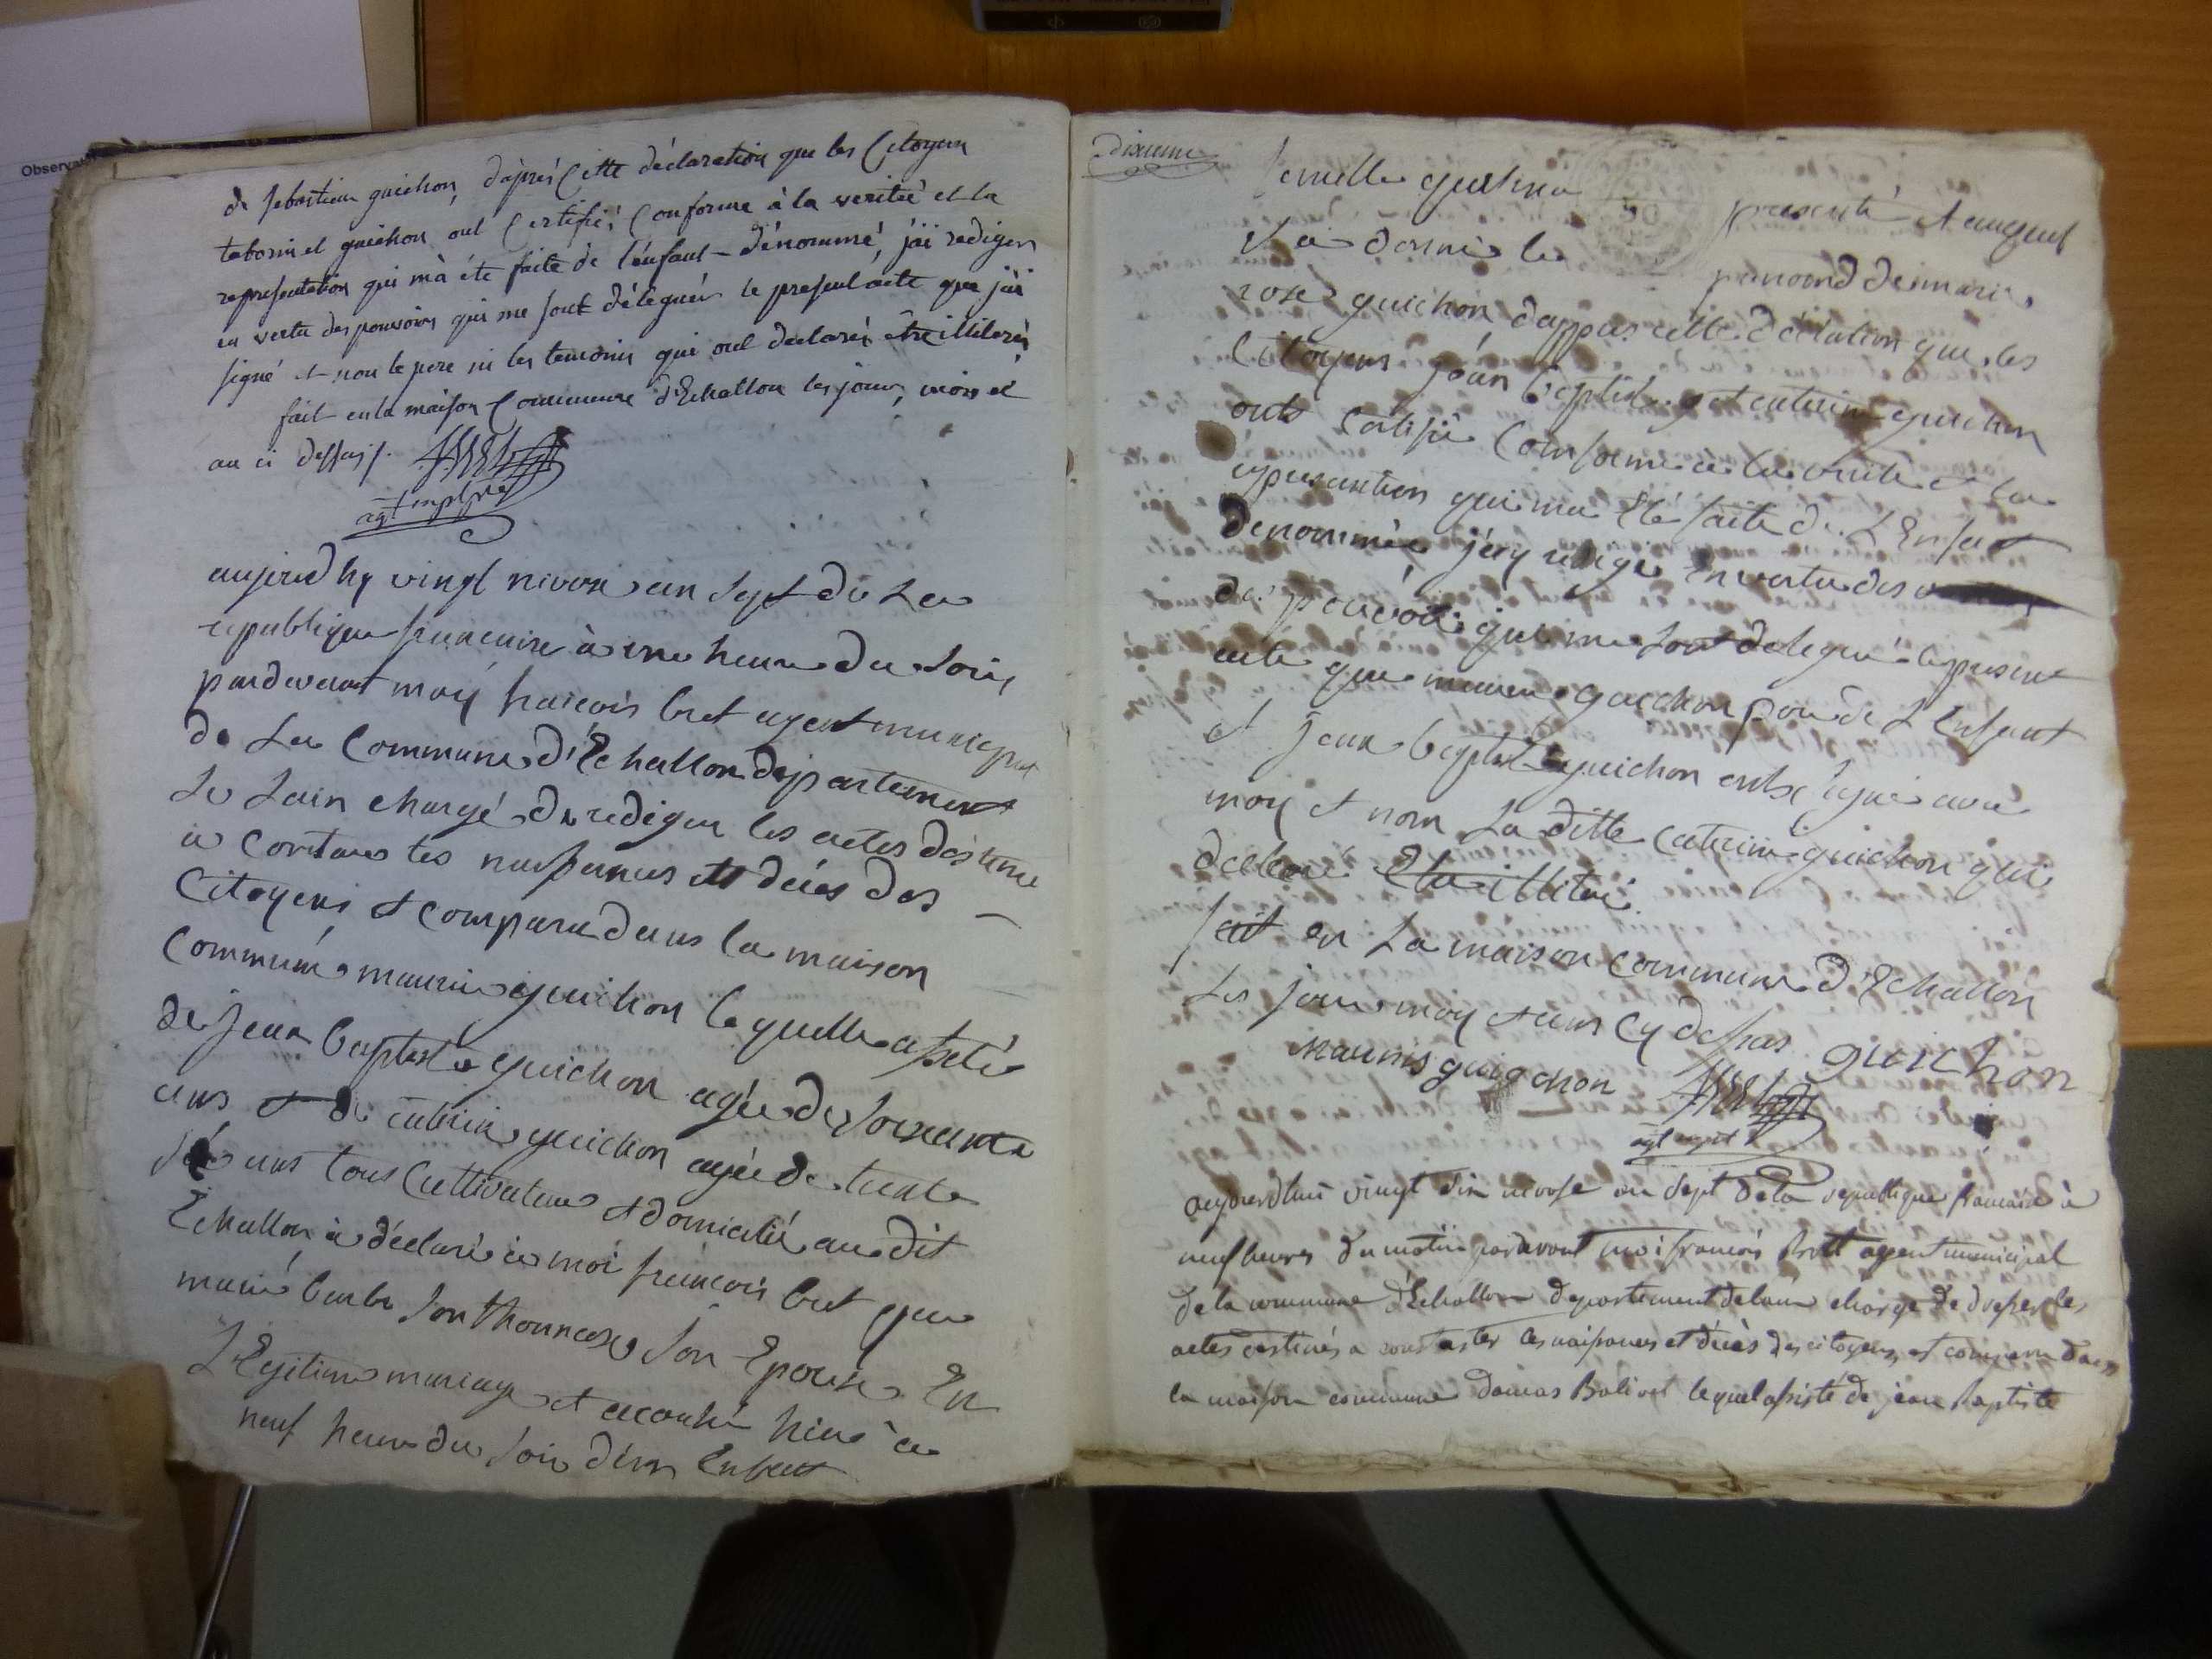 Observat
de sebastien guichon, d'aprés Cette déclaration que les Citoyen
tabornel et guichon ont Certifié Conforme à la veritée et la
representation qui m'a été faite de l'énfant - dénommé, j'ai rediger
en vertu des pouvoirs qui me sont délégués le present acte que j'ai
signé et non le pere ni les temoins qui ont declarés être illiterés
fait en la maison Commune d'Echallon les jour, mois et
an ci dessus.
agt mpl
aujourdhy vingt nivose an Sept de La
republique francaise à une heure du Soir
pardevant moy francois bret agent municipal
de La Commune d'Echallon departement
de Lain chargé de rediger les actes destiné
a Constater les naissances et décés des
Citoyens et comparu dans la maison
Commune mauris guichon lequelle assisté
de jean baptiste guichon agée de Soixante
ans et de caterine guichon agée de trente
six ans tous Cultivateur et domicilié au dit
Echallon à déclaré à moi francois bret que
marie barbe Sonthonnax Son Epouse En
LEgitime mariage et accouché hier à
neuf heure du Soir d'un Enfant
dixieme
femelle quil ma presenté et auquel
Il a donné le prenomd de marie
rose guichon dappres cette déclation que les
Citoyens jéan baptiste et caterine guichon
onts Certifié Conforme a la verité et la
représantion qui ma Eté faite de LEnfant
denommée j'ay redigé En vertu des
des pouvoir qui me sont delegué le present
acte que maurie guichon pere de LEnfant
et jean baptiste guichon onts signé avec
moy et non La ditte Caterine guichon qui
declaré Etre illiteré
fait en La maison commune d'Echallon
Les jour moy et ans cy dessus guichon
maunis guigchon
agt mpl
aujourdhui vingt six nivose an Sept de la republique francaise à
neuf heures du matin pardevant moi francois Brett agent municipal
de la commune d'Echallon departement de l'ain chargé de dresser les
actes destinés a constater les naissances et décés des citoyens, et comparu dans
la maison commune Damas Bolivet lequel assisté de jean Baptiste